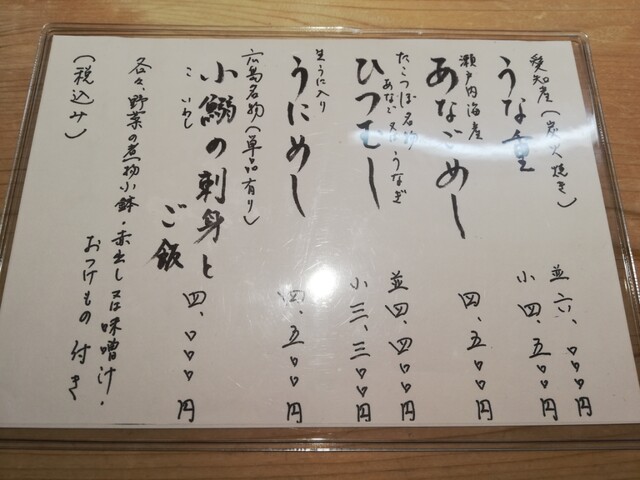 愛知産(炭火焼き)
うな重
並 六、〇〇〇円
小 四、五〇〇円
瀬戸内海産
あなごめし
四、五〇〇円
たこつぼ名物
あなご又はうなぎ
ひつむし
並 四、四〇〇円
小 三、三〇〇円
生うに入り
うにめし
四、五〇〇円
広島名物(単品有り)
小鰯の刺身と
こいわし
ご飯
四、〇〇〇円
各々、野菜の煮物小鉢・赤出し又は味噌汁・
おつけもの付き
(税込み)